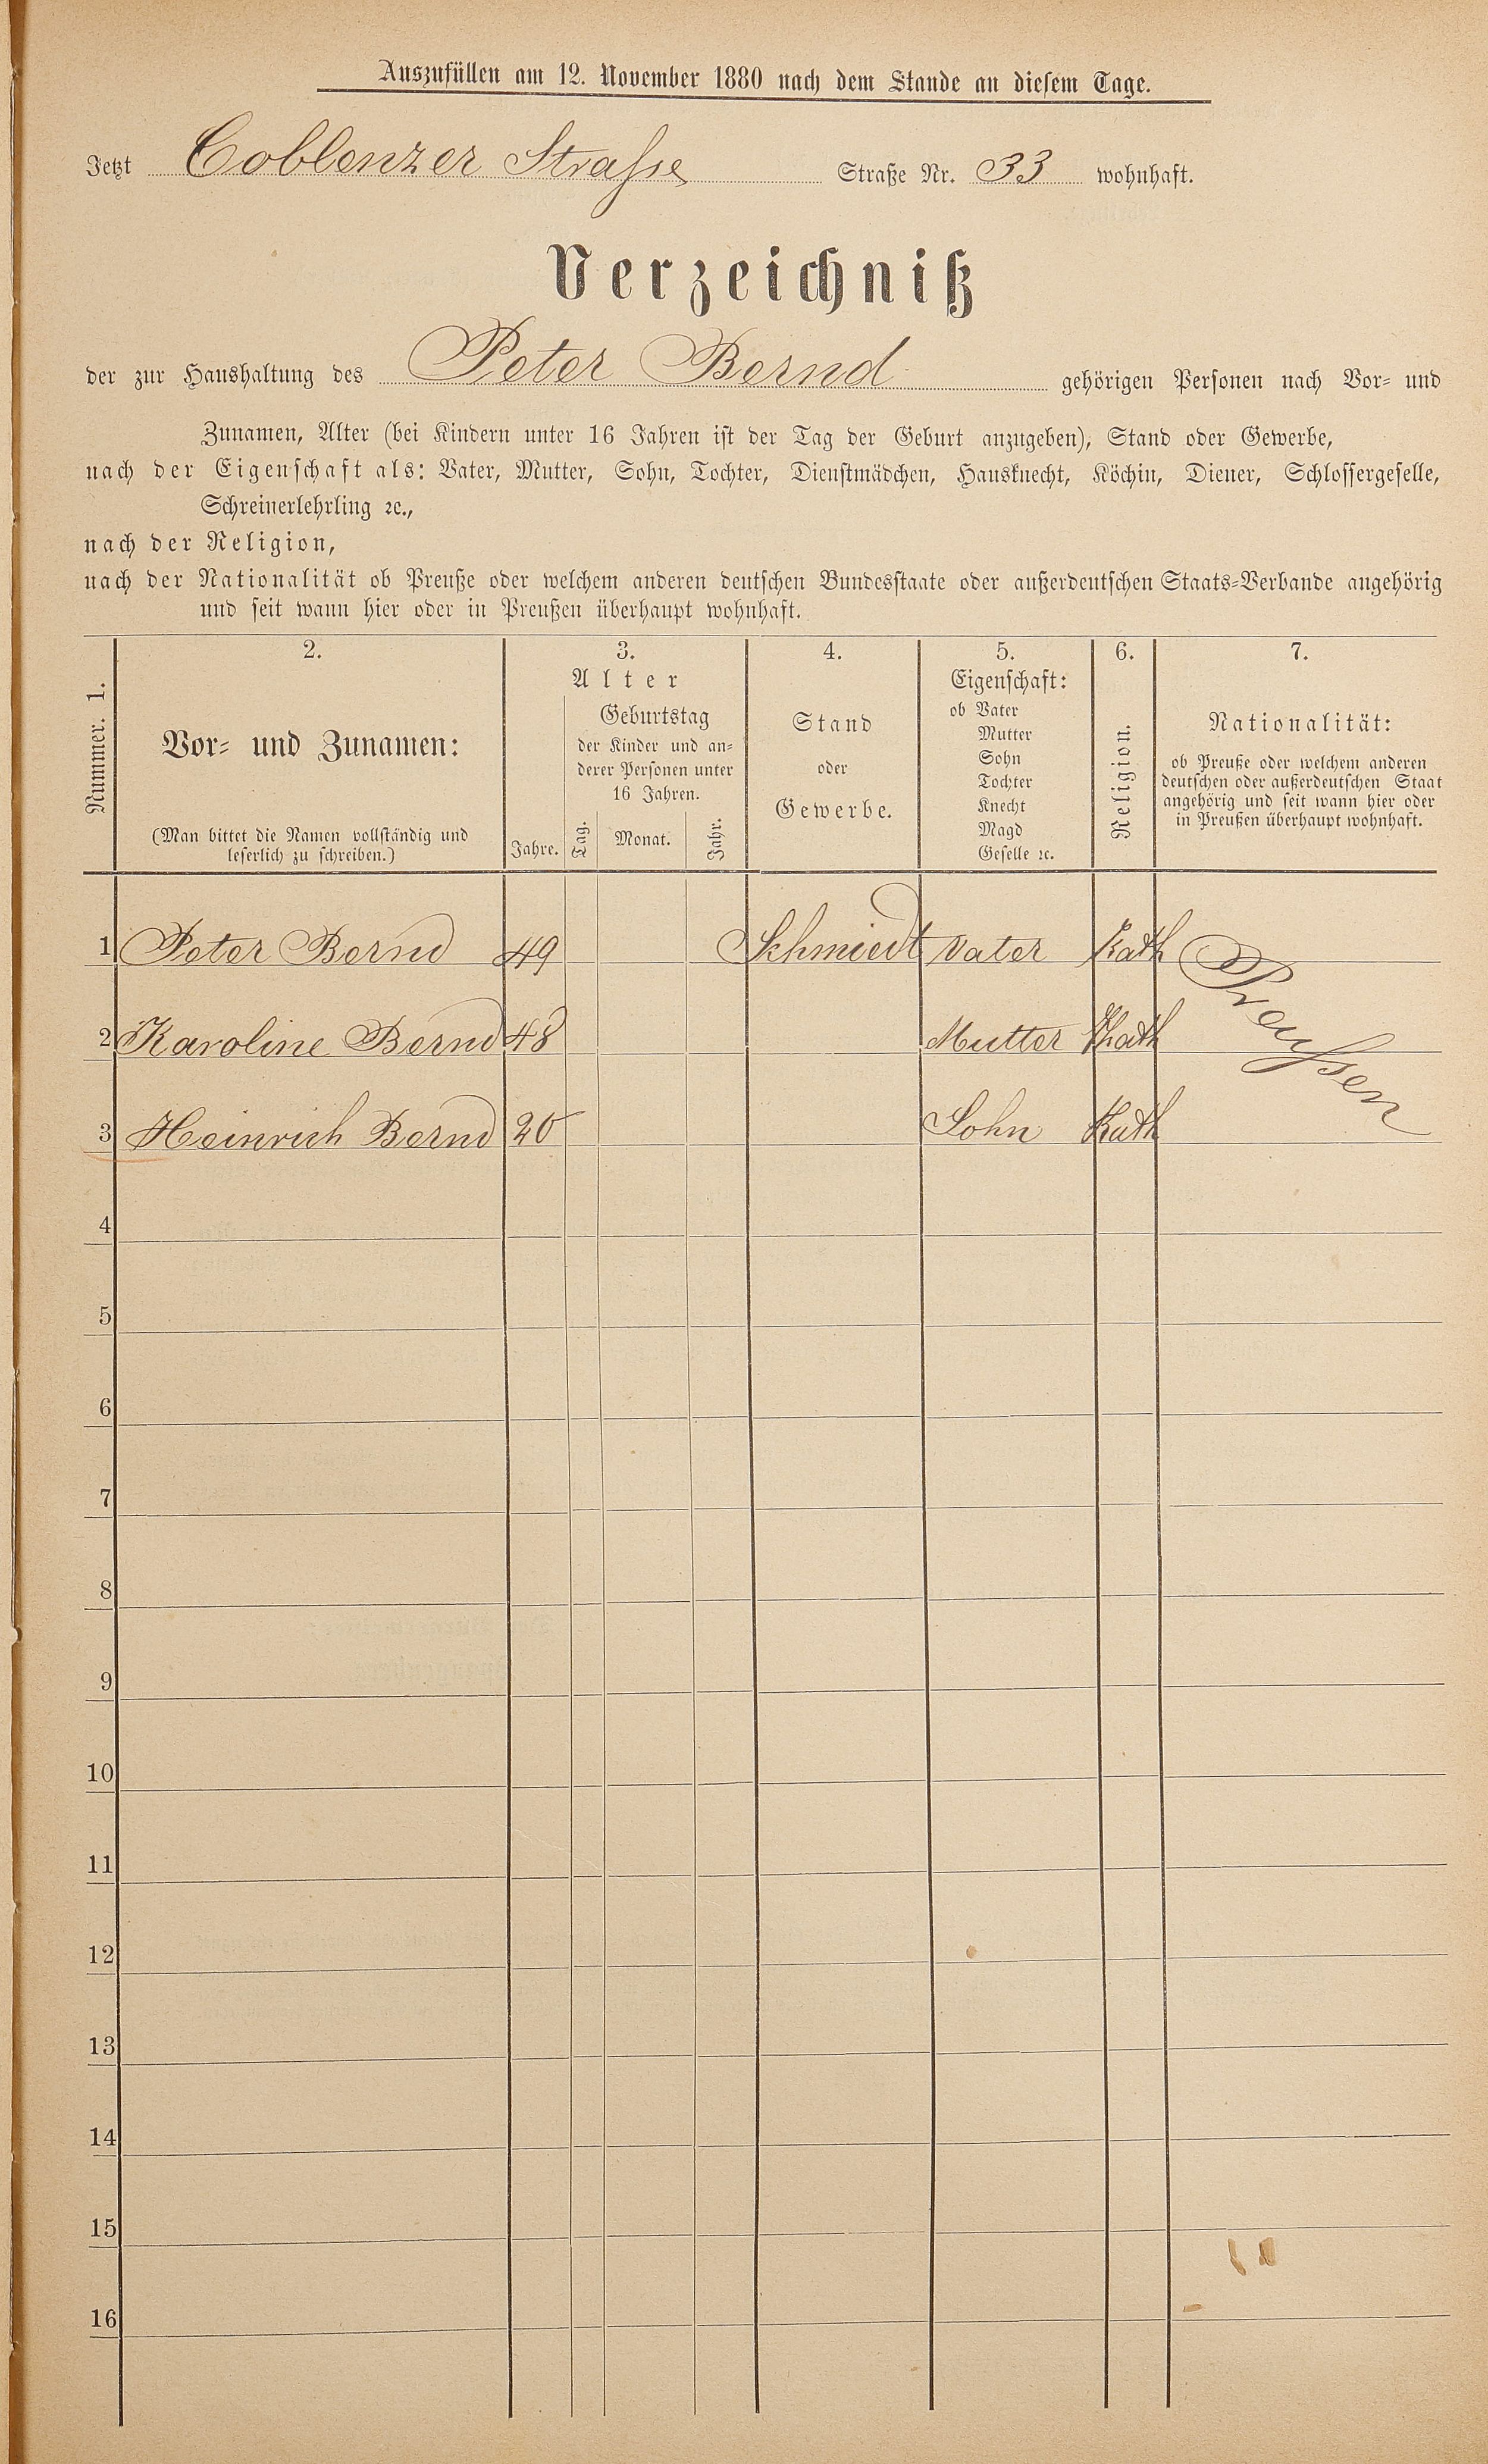 Auszufüllen am 12. November 1880 nach dem Stande an diesem Tage.
Jetzt Coblenzer Straße Straße Nr. 33 wohnhaft.
Verzeichniß
der zur Haushaltung des Peter Bernd gehörigen Personen nach Vor- und
Zunamen, Alter (bei Kindern unter 16 Jahren ist der Tag der Geburt anzugeben), Stand oder Gewerbe,
nach der Eigenschaft als: Vater, Mutter, Sohn, Tochter, Dienstmädchen, Hausknecht, Köchin, Diener, Schlossergeselle,
Schreinerlehrling ꝛc.,
nach der Religion,
nach der Nationalität ob Preuße oder welchem anderen deutschen Bundesstaate oder außerdeutschen Staats-Verbande angehörig
und seit wann hier oder in Preußen überhaupt wohnhaft.
Nummer. 1.
2.
Vor- und Zunamen:
(Man bittet die Namen vollständig und
leserlich zu schreiben.)
3.
Alter
Jahre.
Geburtstag
der Kinder und an-
derer Personen unter
16 Jahren.
Tag. Monat. Jahr.
4.
Stand
oder
Gewerbe.
5.
Eigenschaft:
ob Vater
Mutter
Sohn
Tochter
Knecht
Magd
Geselle ꝛc.
6.
Religion.
7.
Nationalität:
ob Preuße oder welchem anderen
deutschen oder außerdeutschen Staat
angehörig und seit wann hier oder
in Preußen überhaupt wohnhaft.
1 Peter Bernd 49 Schmiedt Vater Kath Preußen
2 Karoline Bernd 48 Mutter Kath
3 Heinrich Bernd 20 Sohn Kath
4
5
6
7
8
9
10
11
12
13
14
15
16